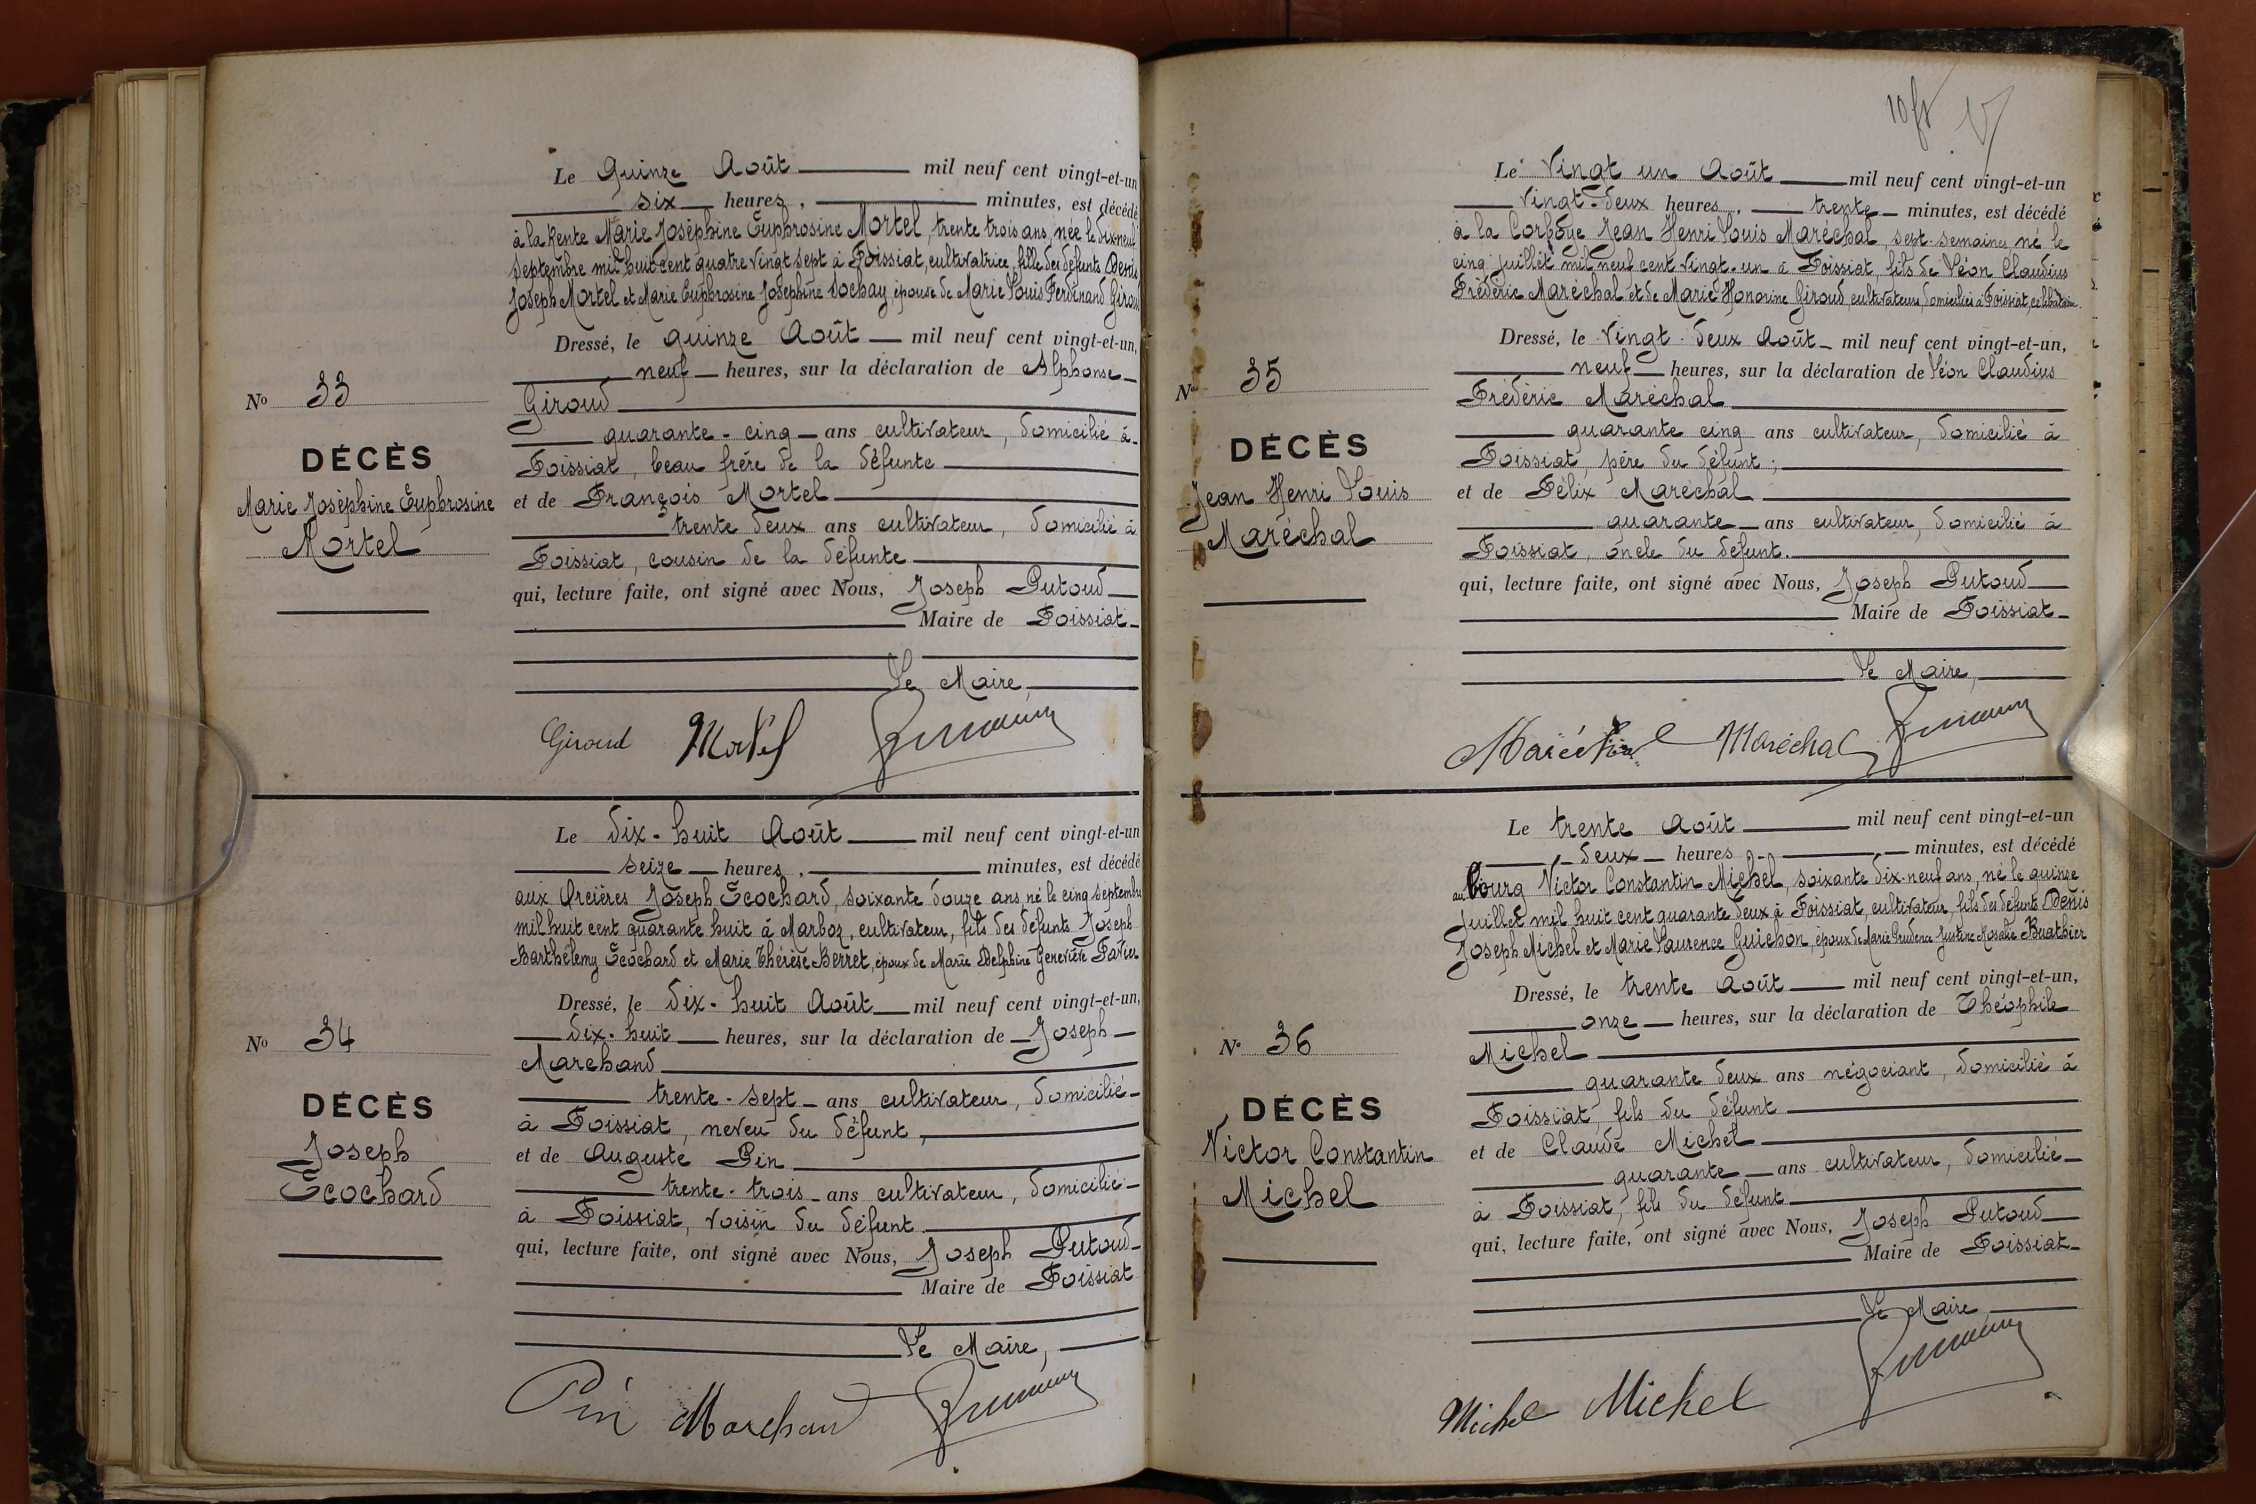 Le Quinze Août mil neuf cent vingt-et-un
six heures, minutes, est décédé
à la Rente Marie Joséphine Euphrosine Mortel, trente trois ans, née le dix-neuf
septembre mil huit cent quatre vingt sept à Foissiat, cultivatrice, fille des défunts Denis
Joseph Mortel et Marie Euphrosine Joséphine Sochay, épouse de Marie Louis Ferdinand Giroud
Dressé, le quinze Août mil neuf cent vingt-et-un,
neuf heures, sur la déclaration de Alphonse
Giroud
quarante-cinq ans cultivateur, domicilié à
Foissiat, beau frère de la défunte
et de François Mortel
trente deux ans cultivateur, domicilié à
Foissiat, cousin de la défunte
qui, lecture faite, ont signé avec Nous, Joseph Putoud
Maire de Foissiat
Le Maire,
Giroud Mortel
No 33
DÉCÈS
Marie Joséphine Euphrosine
Mortel
Le dix-huit Août mil neuf cent vingt-et-un
seize heures, minutes, est décédé
aux Orcières Joseph Ecochard, soixante douze ans, né le cinq septembre
mil huit cent quarante huit à Marboz, cultivateur, fils des défunts Joseph
Barthélemy Ecochard et Marie Thérèse Berret, époux de Marie Delphine Geneviève Favier
Dressé, le dix-huit Août mil neuf cent vingt-et-un,
dix-huit heures, sur la déclaration de Joseph
Marchand
trente-sept ans cultivateur, domicilié
à Foissiat, neveu du défunt,
et de Auguste Pin
trente-trois ans cultivateur, domicilié
à Foissiat, voisin du défunt
qui, lecture faite, ont signé avec Nous, Joseph Putoud
Maire de Foissiat
Le Maire,
Pin Marchand
No 34
DÉCÈS
Joseph
Ecochard
10 fr
Le Vingt un Août mil neuf cent vingt-et-un
vingt-deux heures, trente minutes, est décédé
à la Corboye Jean Henri Louis Maréchal, sept semaines né le
cinq juillet mil neuf cent vingt-un à Foissiat, fils de Léon Claudius
Frédéric Maréchal et de Marie Honorine Giroud, cultivateurs, domiciliés à Foissiat, célibataire
Dressé, le vingt-deux Août mil neuf cent vingt-et-un,
neuf heures, sur la déclaration de Léon Claudius
Frédéric Maréchal
quarante cinq ans cultivateur, domicilié à
Foissiat, père du défunt;
et de Félix Maréchal
quarante ans cultivateur, domicilié à
Foissiat, oncle du défunt.
qui, lecture faite, ont signé avec Nous, Joseph Putoud
Maire de Foissiat
Le Maire,
Maréchal Maréchal
No 35
DÉCÈS
Jean Henri Louis
Maréchal
Le trente Août mil neuf cent vingt-et-un
deux heures minutes, est décédé
au Bourg Victor Constantin Michel, soixante dix-neuf ans, né le quinze
Juillet mil huit cent quarante deux à Foissiat, cultivateur, fils des défunts Denis
Joseph Michel et Marie Laurence Guichon, époux de Marie Prudence Justine Rosalie Buathier
Dressé, le trente Août mil neuf cent vingt-et-un,
onze heures, sur la déclaration de Théophile
Michel
quarante deux ans négociant, domicilié à
Foissiat, fils du défunt
et de Claude Michel
quarante ans cultivateur, domicilié
à Foissiat, fils du défunt
qui, lecture faite, ont signé avec Nous, Joseph Putoud
Maire de Foissiat
Le Maire,
Michel Michel
No 36
DÉCÈS
Victor Constantin
Michel